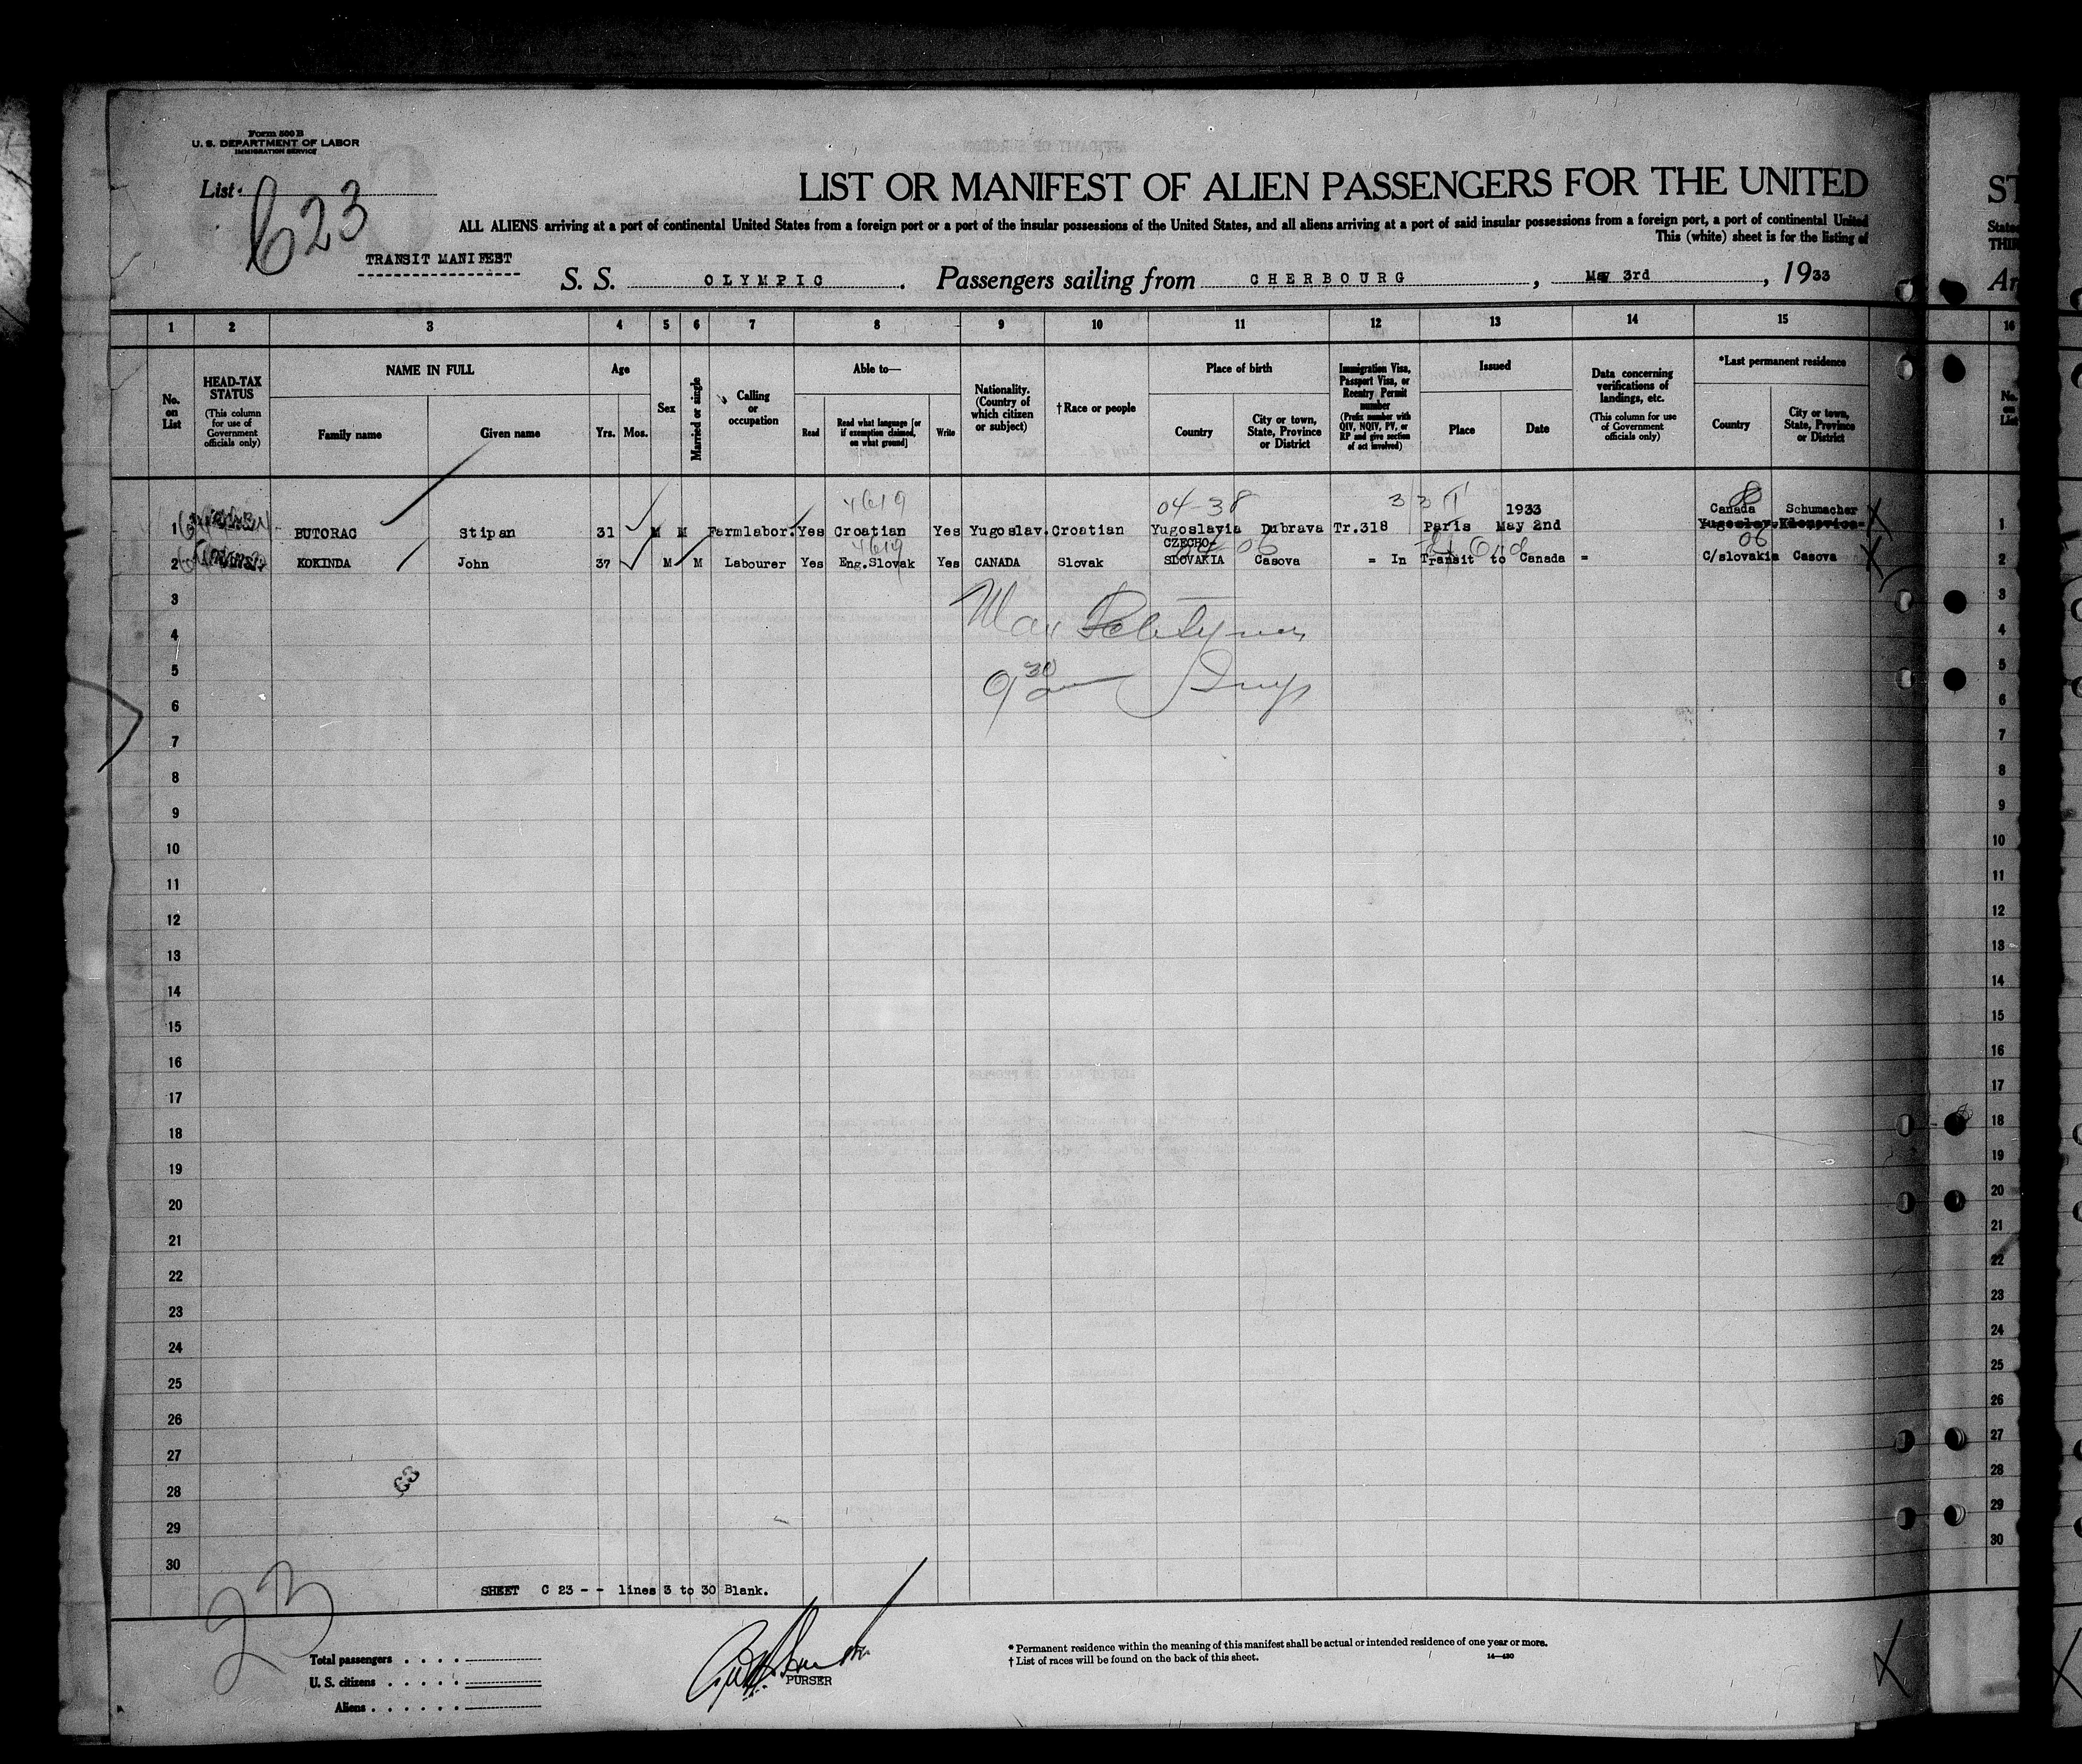 Form 500 B
U. S. DEPARTMENT OF LABOR
IMMIGRATION SERVICE
List
C 23
TRANSIT MANIFEST
LIST OR MANIFEST OF ALIEN PASSENGERS FOR THE UNITED
ST
ALL ALIENS arriving at a port of continental United States from a foreign port or a port of the insular possessions of the United States, and all aliens arriving at a port of said insular possessions from a foreign port, a port of continental United
This (white) sheet is for the listing of
S. S. OLYMPIC . Passengers sailing from CHERBOURG , May 3rd , 1933
1 2 3 4 5 6 7 8 9 10 11 12 13 14 15 16
No. on List
HEAD-TAX STATUS (This column for use of Government officials only)
NAME IN FULL
Family name Given name
Age
Yrs. Mos.
Sex
Married or single
Calling or occupation
Able to—
Read Read what language [or if exemption claimed, on what ground] Write
Nationality. (Country of which citizen or subject)
†Race or people
Place of birth
Country City or town, State, Province or District
Immigration Visa, Passport Visa, or Reentry Permit number (Prefix number with QIV, NQIV, PV, or RP and give section of act involved)
Issued
Place Date
Data concerning verifications of landings, etc. (This column for use of Government officials only)
*Last permanent residence
Country City or town, State, Province or District
4619 04-38 1933 Canada Schumacher
1 BUTORAC Stipan 31 M M Farmlabor. Yes Croatian Yes Yugoslav. Croatian Yugoslavia Dubrava Tr.318 Paris May 2nd Yugoslav. 1
4619 CZECHO- 06 06
2 KOKINDA John 37 M M Labourer Yes Eng.Slovak Yes CANADA Slovak SLOVAKIA Casova = In Transit to Canada = C/slovakia Casova 2
3 3
4 4
5 9 30 5
6 6
7 7
8 8
9 9
10 10
11 11
12 12
13 13
14 14
15 15
16 16
17 17
18 18
19 19
20 20
21 21
22 22
23 23
24 24
25 25
26 26
27 27
28 28
29 29
30 30
SHEET C 23 - - lines 3 to 30 Blank.
23
Total passengers . . . .
U. S. citizens . . . . .
Aliens . . . . . .
PURSER
* Permanent residence within the meaning of this manifest shall be actual or intended residence of one year or more.
† List of races will be found on the back of this sheet.
14—430